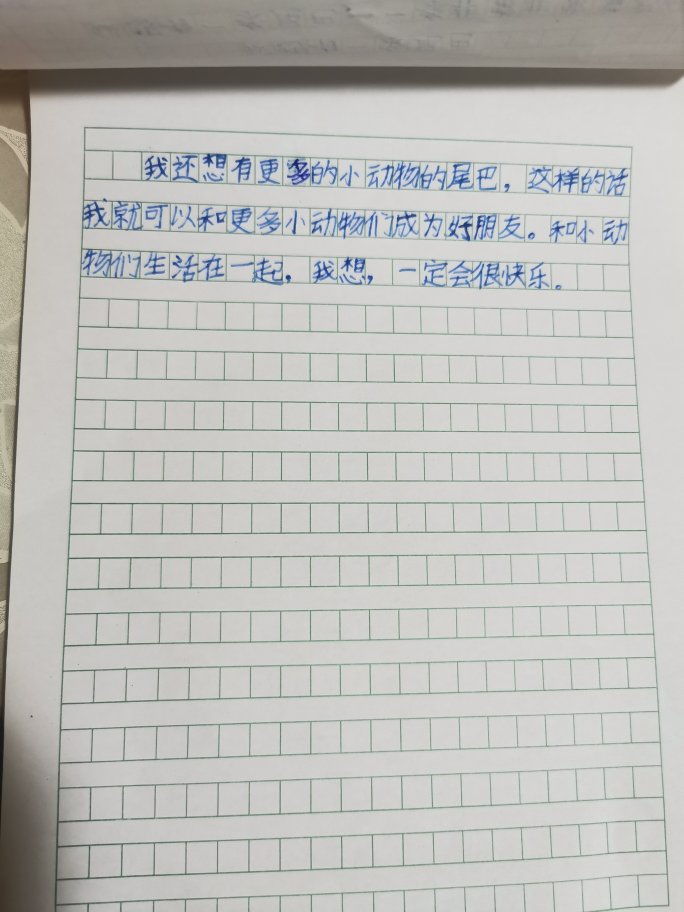 我还想有更多的小动物的尾巴，这样的话
我就可以和更多小动物们成为好朋友。和小动
物们生活在一起，我想，一定会很快乐。